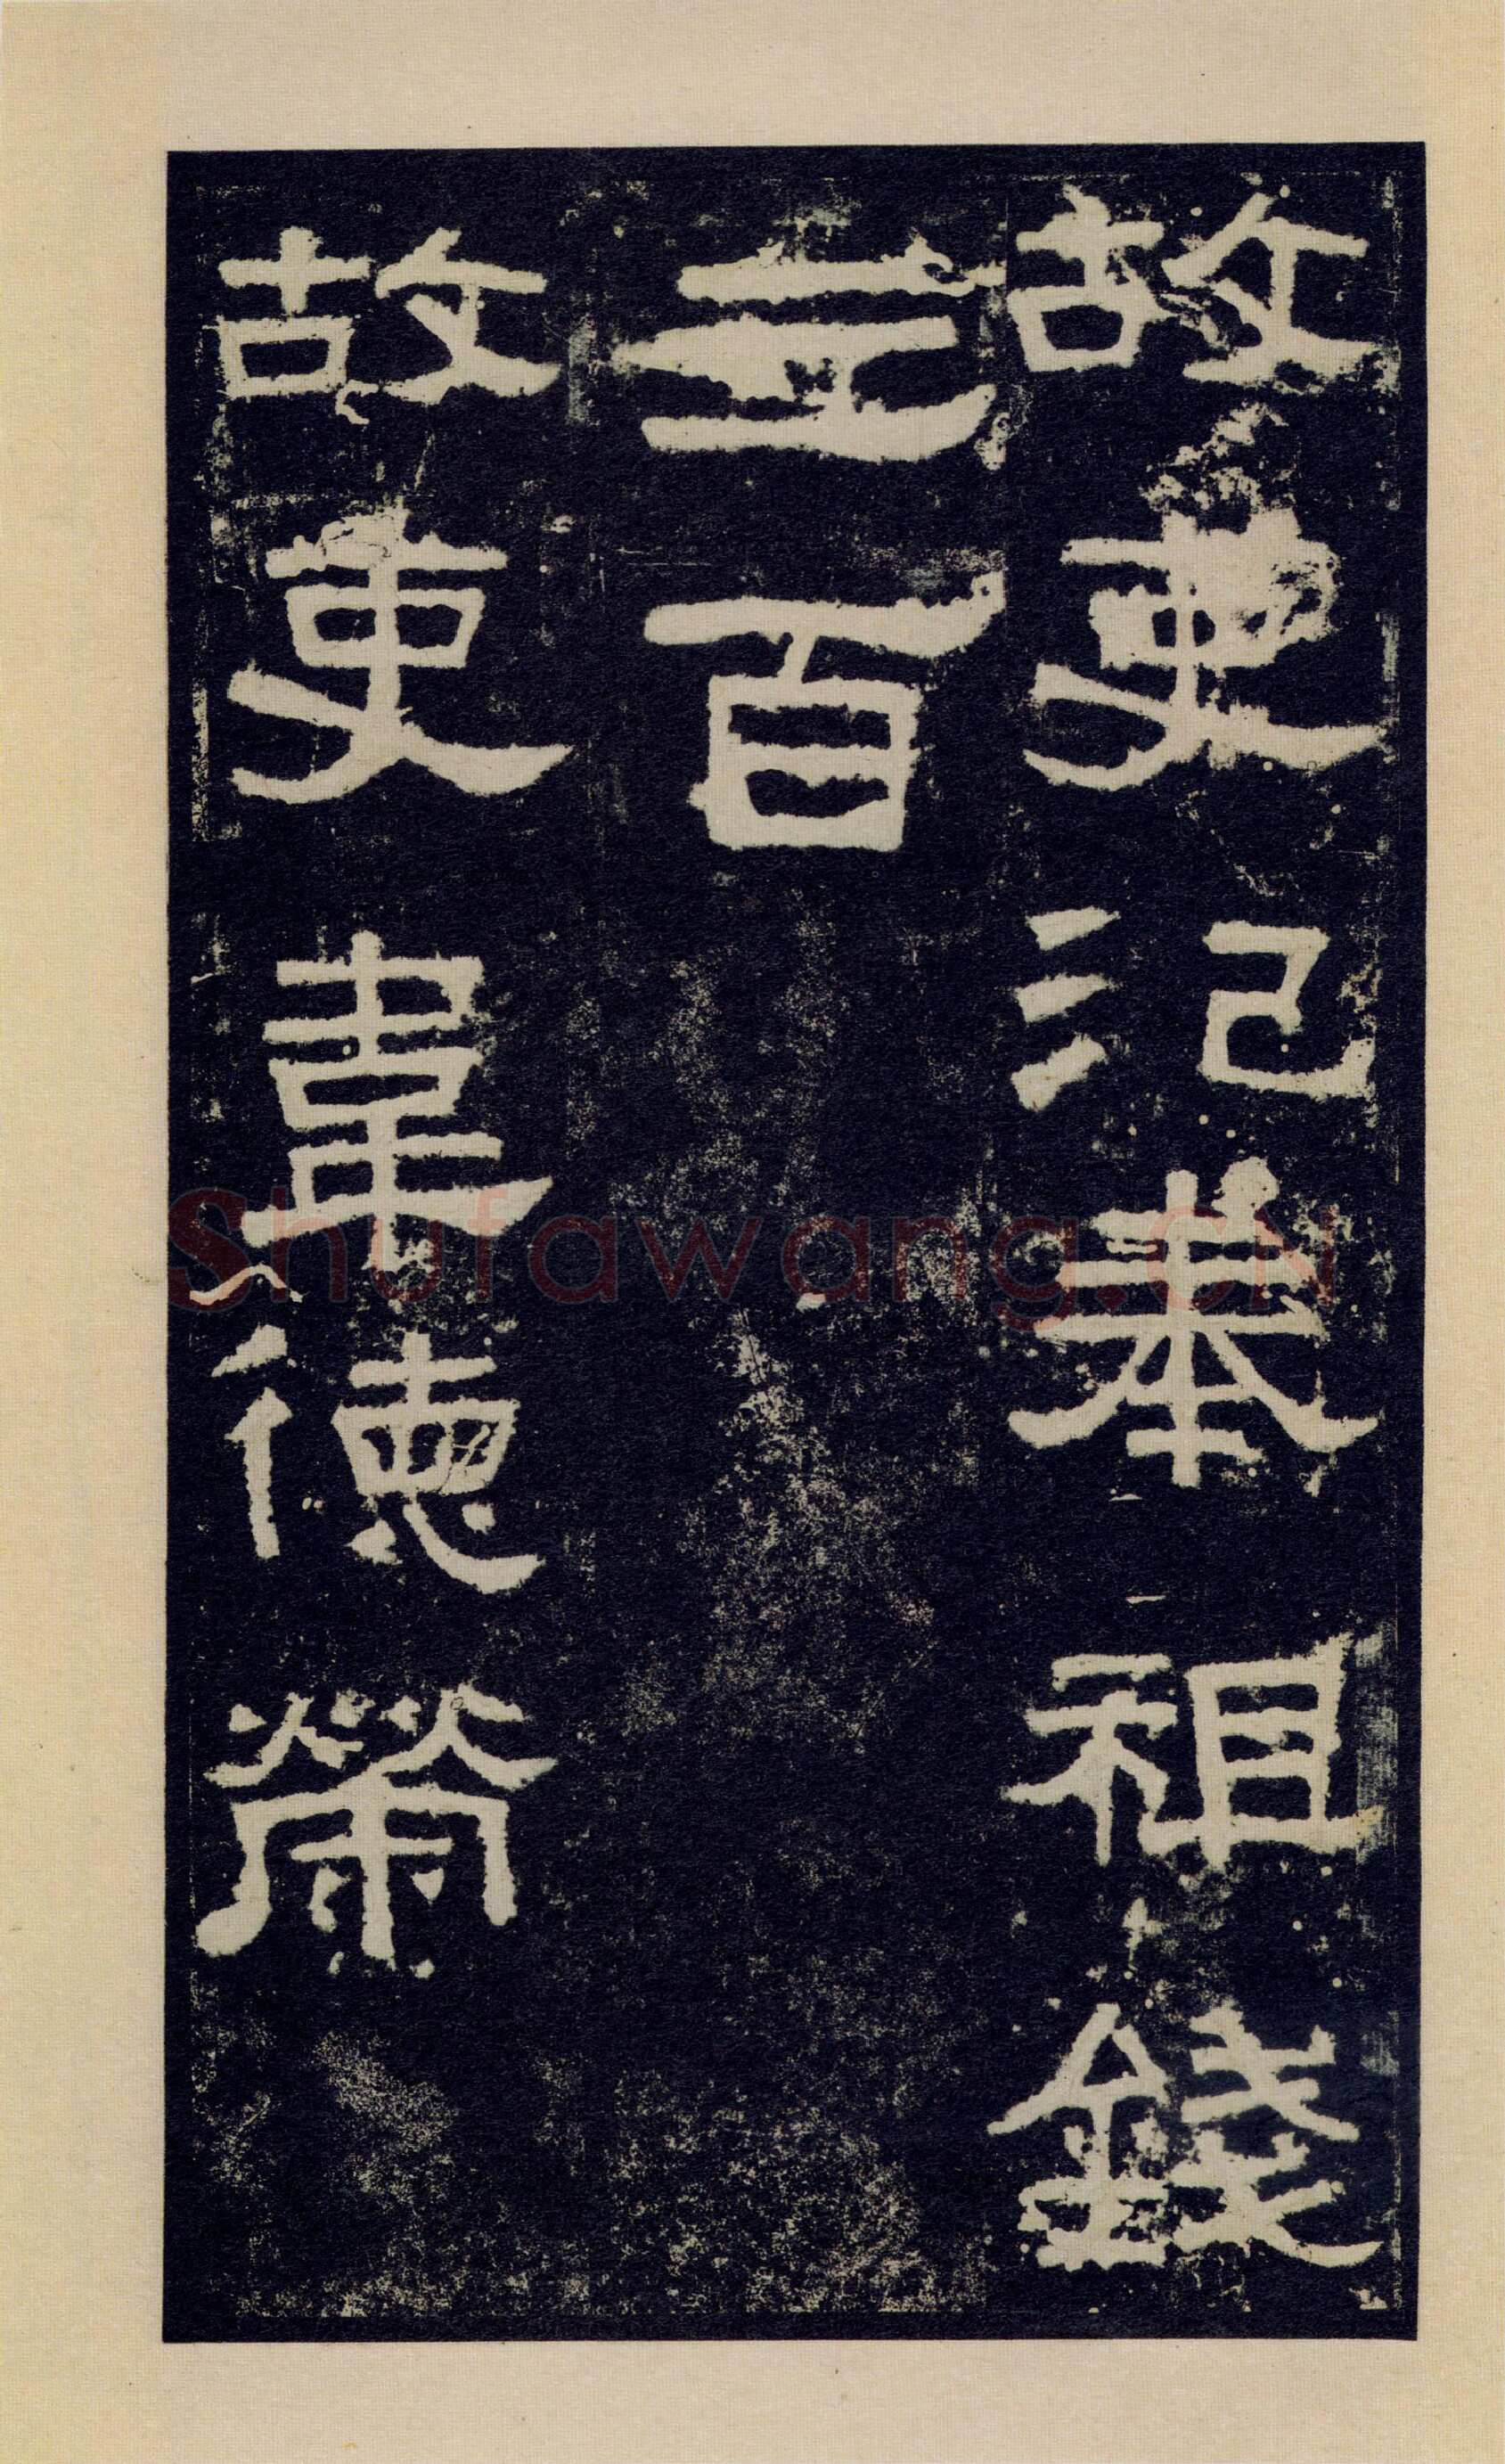 故吏氾奉祖錢
三百
故吏韋德榮
Shufawang.CN